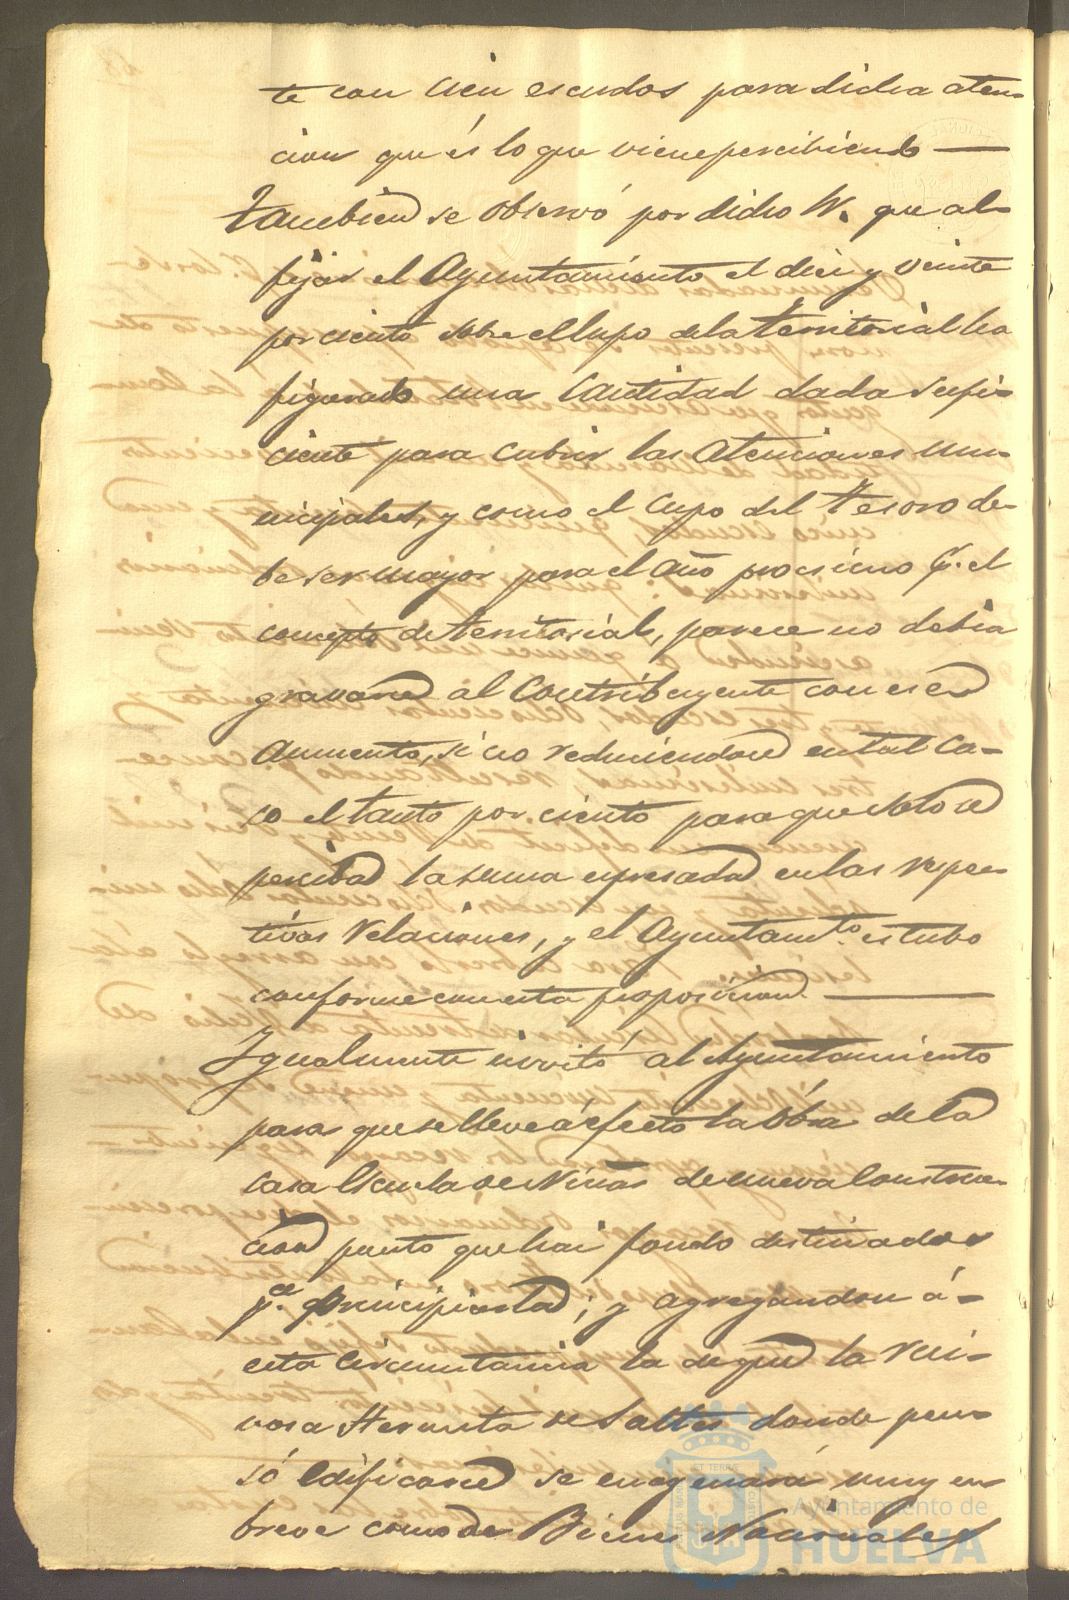 te con cien escudos para dicha aten-
cion que és lo que viene percibiendo —
Tambien se observó por dicho W. que al
fijar el Ayuntamiento el diez y veinte
por ciento sobre el cupo de la territorial ha
figurado una cantidad dada sufi-
ciente para cubrir las atenciones mu-
nicipales, y como el cupo del tesoro de-
be ser mayor para el año procsimo p.r el
concepto de territorial, parece no debia
gravarse al Contribuyente con ese
aumento, si no reduciendose en tal ca-
so el tanto por ciento para que solo se
perciba la suma espresada en las respec-
tivas relaciones, y el Ayuntam.to estubo
conforme con esta proposicion. —
Igualmente invitó al Ayuntamiento
para que se lleve á efecto la Obra de la
Casa Escuela de Niñas de nueva Construc-
cion punto que hai fondo destinados
p.a principiarla; y agregandose á
esta circunstancia la de que la rui-
nosa Hermita de Saltes donde pen-
só edificarse se enagenará muy en
breve como de Bienes Nacionales
Ayuntamiento de
HUELVA